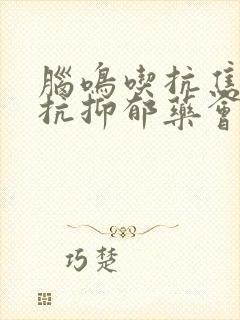 腦鳴喫抗焦
抗抑郁藥會
巧楚